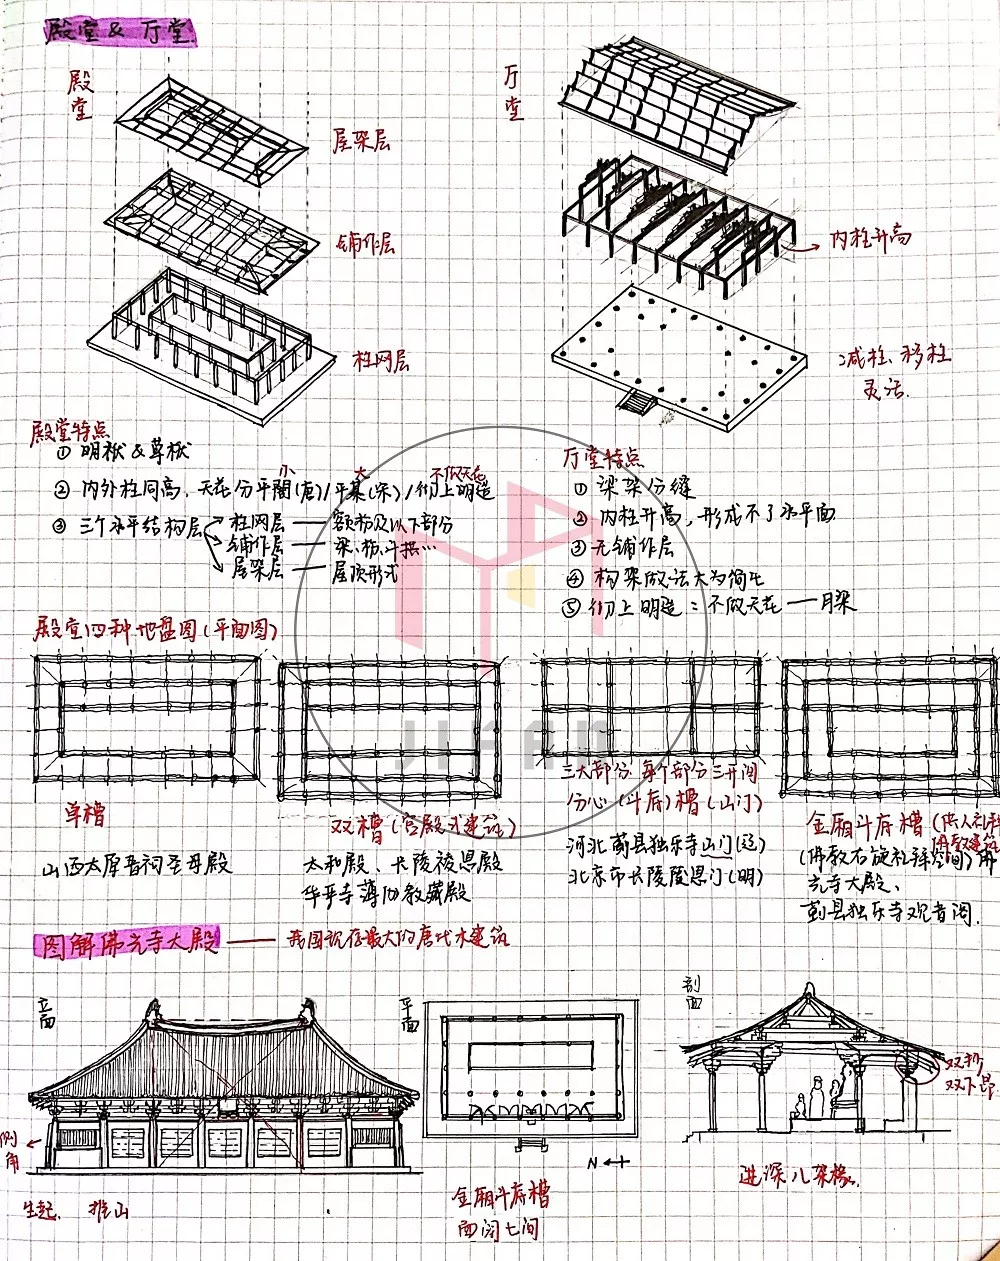 殿堂 & 厅堂
殿堂
屋架层
铺作层
柱网层
厅堂
内柱升高
减柱、移柱
灵活.
殿堂特点
① 明栿 & 草栿
② 内外柱同高, 天花分平闇(唐)/平棊(宋)/彻上明造
小 大 不做天花
③ 三个水平结构层
柱网层 — 额枋及以下部分
铺作层 — 梁、枋、斗拱…
屋架层 — 屋顶形式
厅堂特点
① 梁架分缝
② 内柱升高, 形成不了水平面
③ 无铺作层
④ 构架做法大为简化
⑤ 彻上明造: 不做天花 — 月梁
殿堂四种地盘图(平面图)
单槽
山西太原晋祠圣母殿
双槽(宫殿式建筑)
太和殿、长陵祾恩殿
华严寺薄伽教藏殿
三大部分 每个部分三开间
分心(斗底)槽(山门)
河北蓟县独乐寺山门(辽)
北京市长陵陵恩门(明)
金厢斗底槽(供人礼拜
佛教建筑
(佛教右旋礼拜空间) 佛
光寺大殿、
蓟县独乐寺观音阁.
图解佛光寺大殿 — 我国现存最大的唐代木建筑
立面
侧角
生起、推山
平面
N
金厢斗底槽
面阔七间
剖面
双抄
双下昂
进深八架椽.
JIFAN